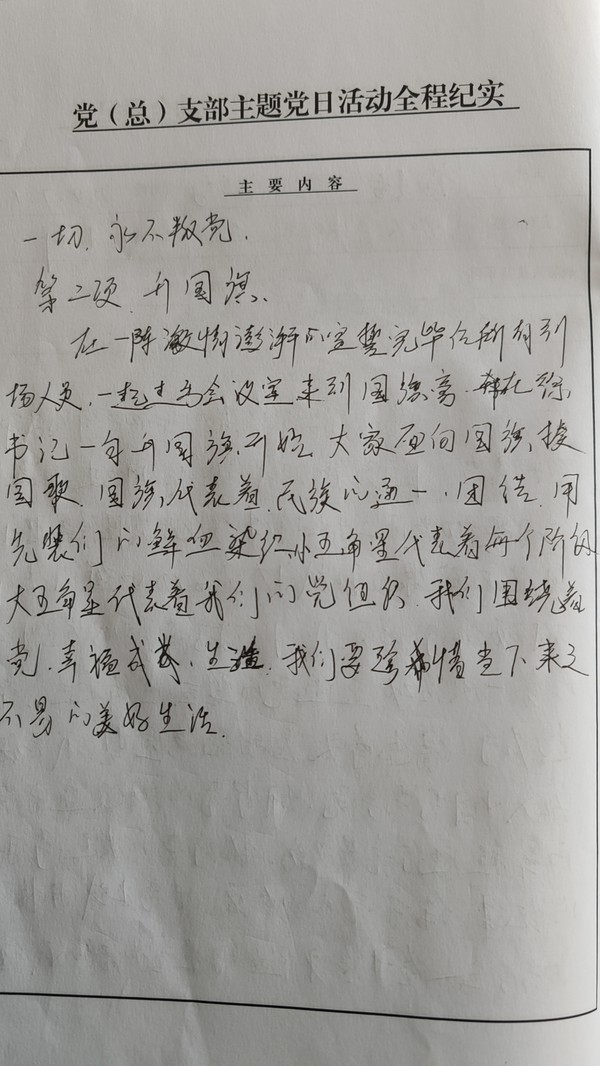 党（总）支部主题党日活动全程纪实
主要内容
一切，永不叛党。
第二项，升国旗、
在一陈激情澎湃的宣誓完毕后所有到
场人员，一起走出会议室来到国旗
书记一 升国旗开始，大家面向国旗，
国歌，国旗代表着，民族的 一，团结，用
先烈们的鲜血染红，小五角星代表着每个阶级
大五角星代表着我们的党组织，我们围绕着
党，幸福 ，生活，我们要珍惜当下来之
不易的美好生活。